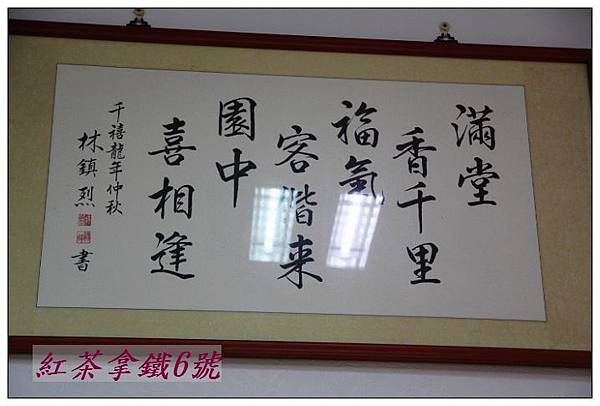 滿堂
香千里
福氣
客皆来
園中
喜相逢
千禧龍年仲秋
林鎮烈
書
紅茶拿鐵6號